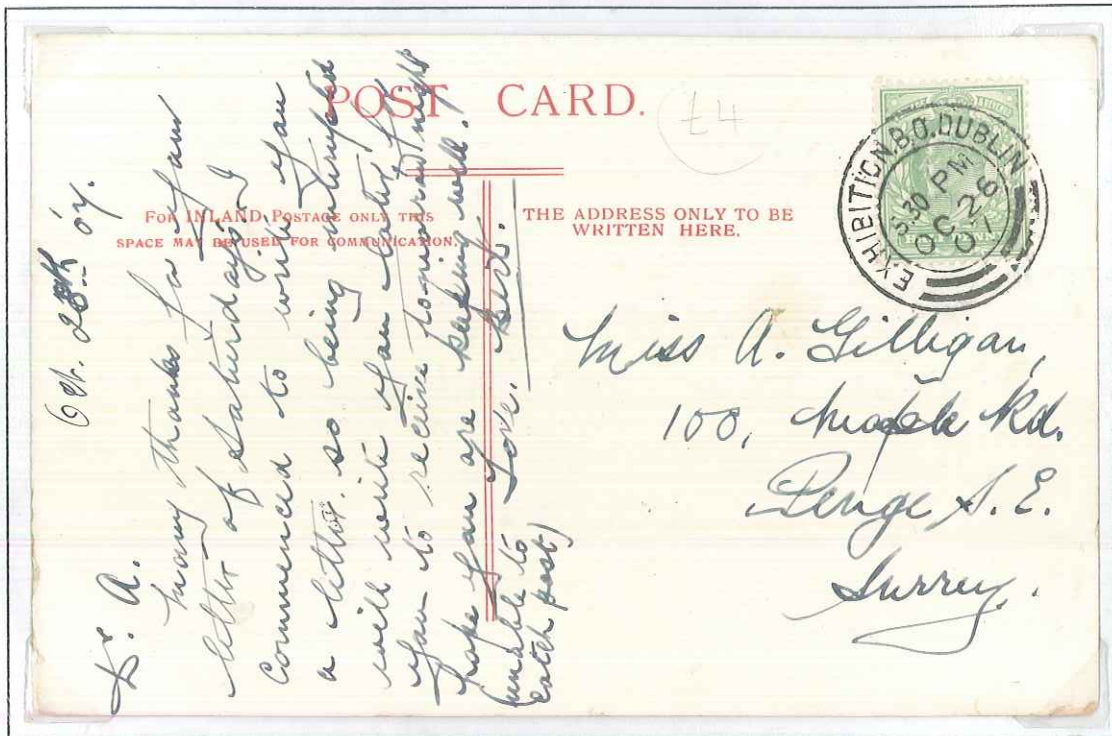 POST CARD.
£4
FOR INLAND POSTAGE ONLY THIS
SPACE MAY BE USED FOR COMMUNICATION.
THE ADDRESS ONLY TO BE
WRITTEN HERE.
EXHIBITION.B.O. DUBLIN
5 30 PM
OC 28
07
Oct. 28th 07.
Dr. A.
Many thanks for your
letter of Saturday. I
commenced to write you
a letter. so being interrupted
will write you later for
you to receive tomorrow night
hope you are keeping well.
Love. Bert.
(unable to
catch post)
Miss A. Gilligan,
100, Maple Rd.
Penge S.E.
Surrey.